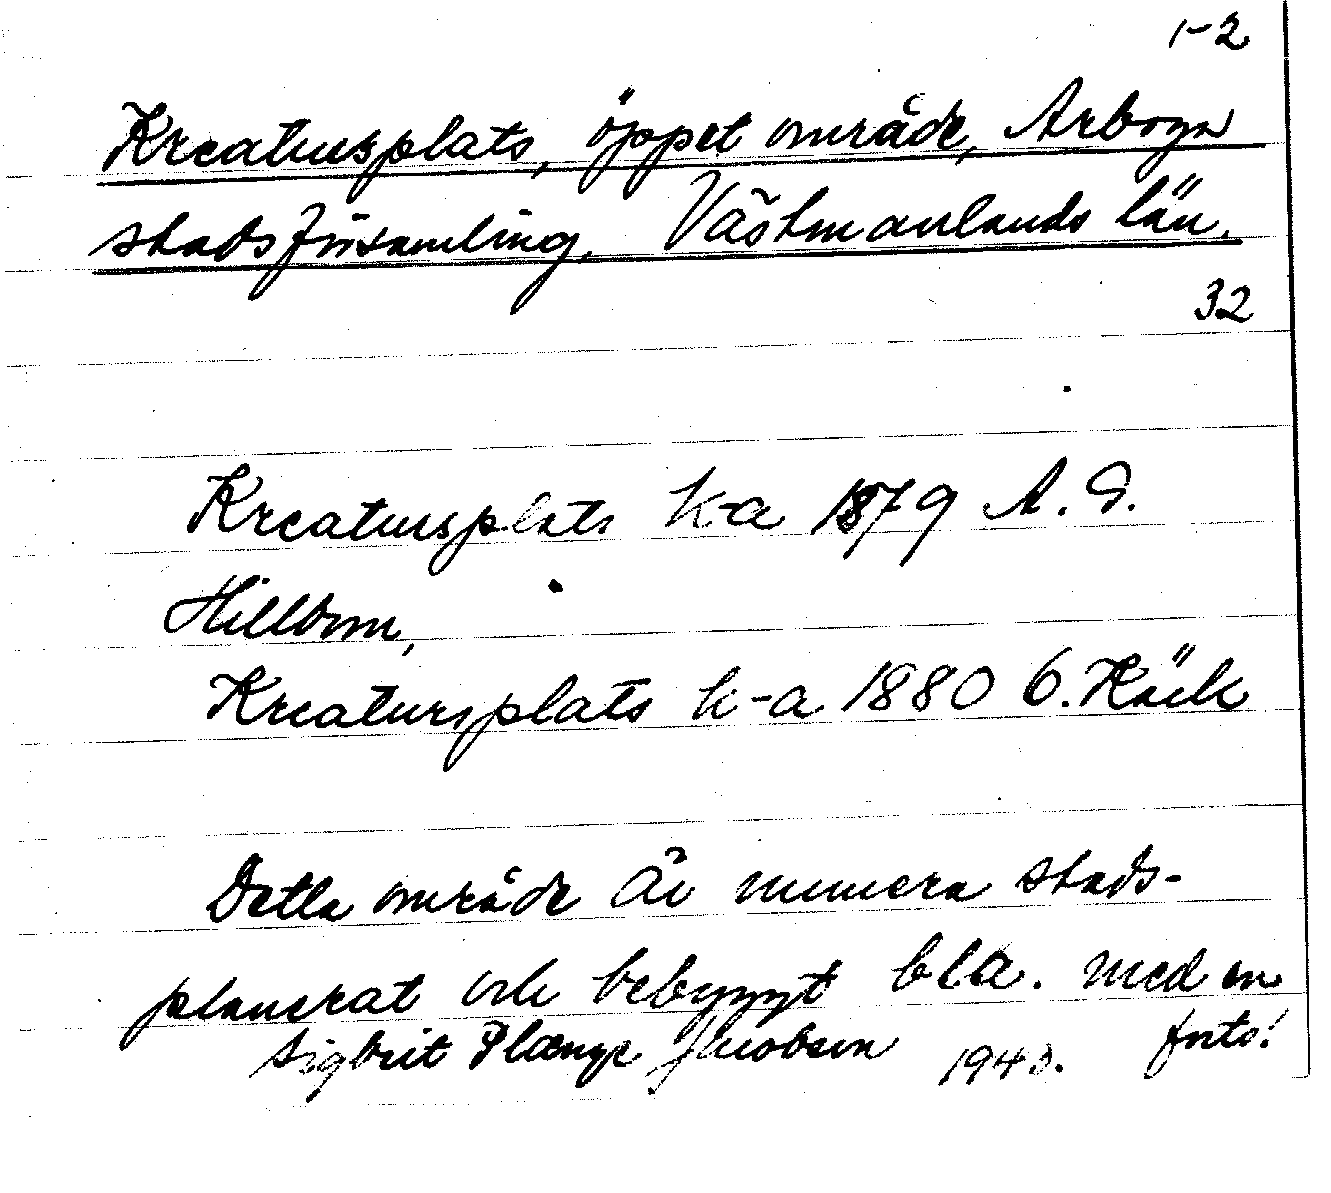 1-2
Kreatursplats, öppet område, Arboga
stadsförsamling. Västmanlands län.
32
Kreatursplats k-a 1879 A. G.
Hillbom,
Kreatursplats k-a 1880 G. Käck
Detta område är numera stads-
planerat och bebyggt bl a. med en
Sigbrit Plænge Jacobson 1943. forts!